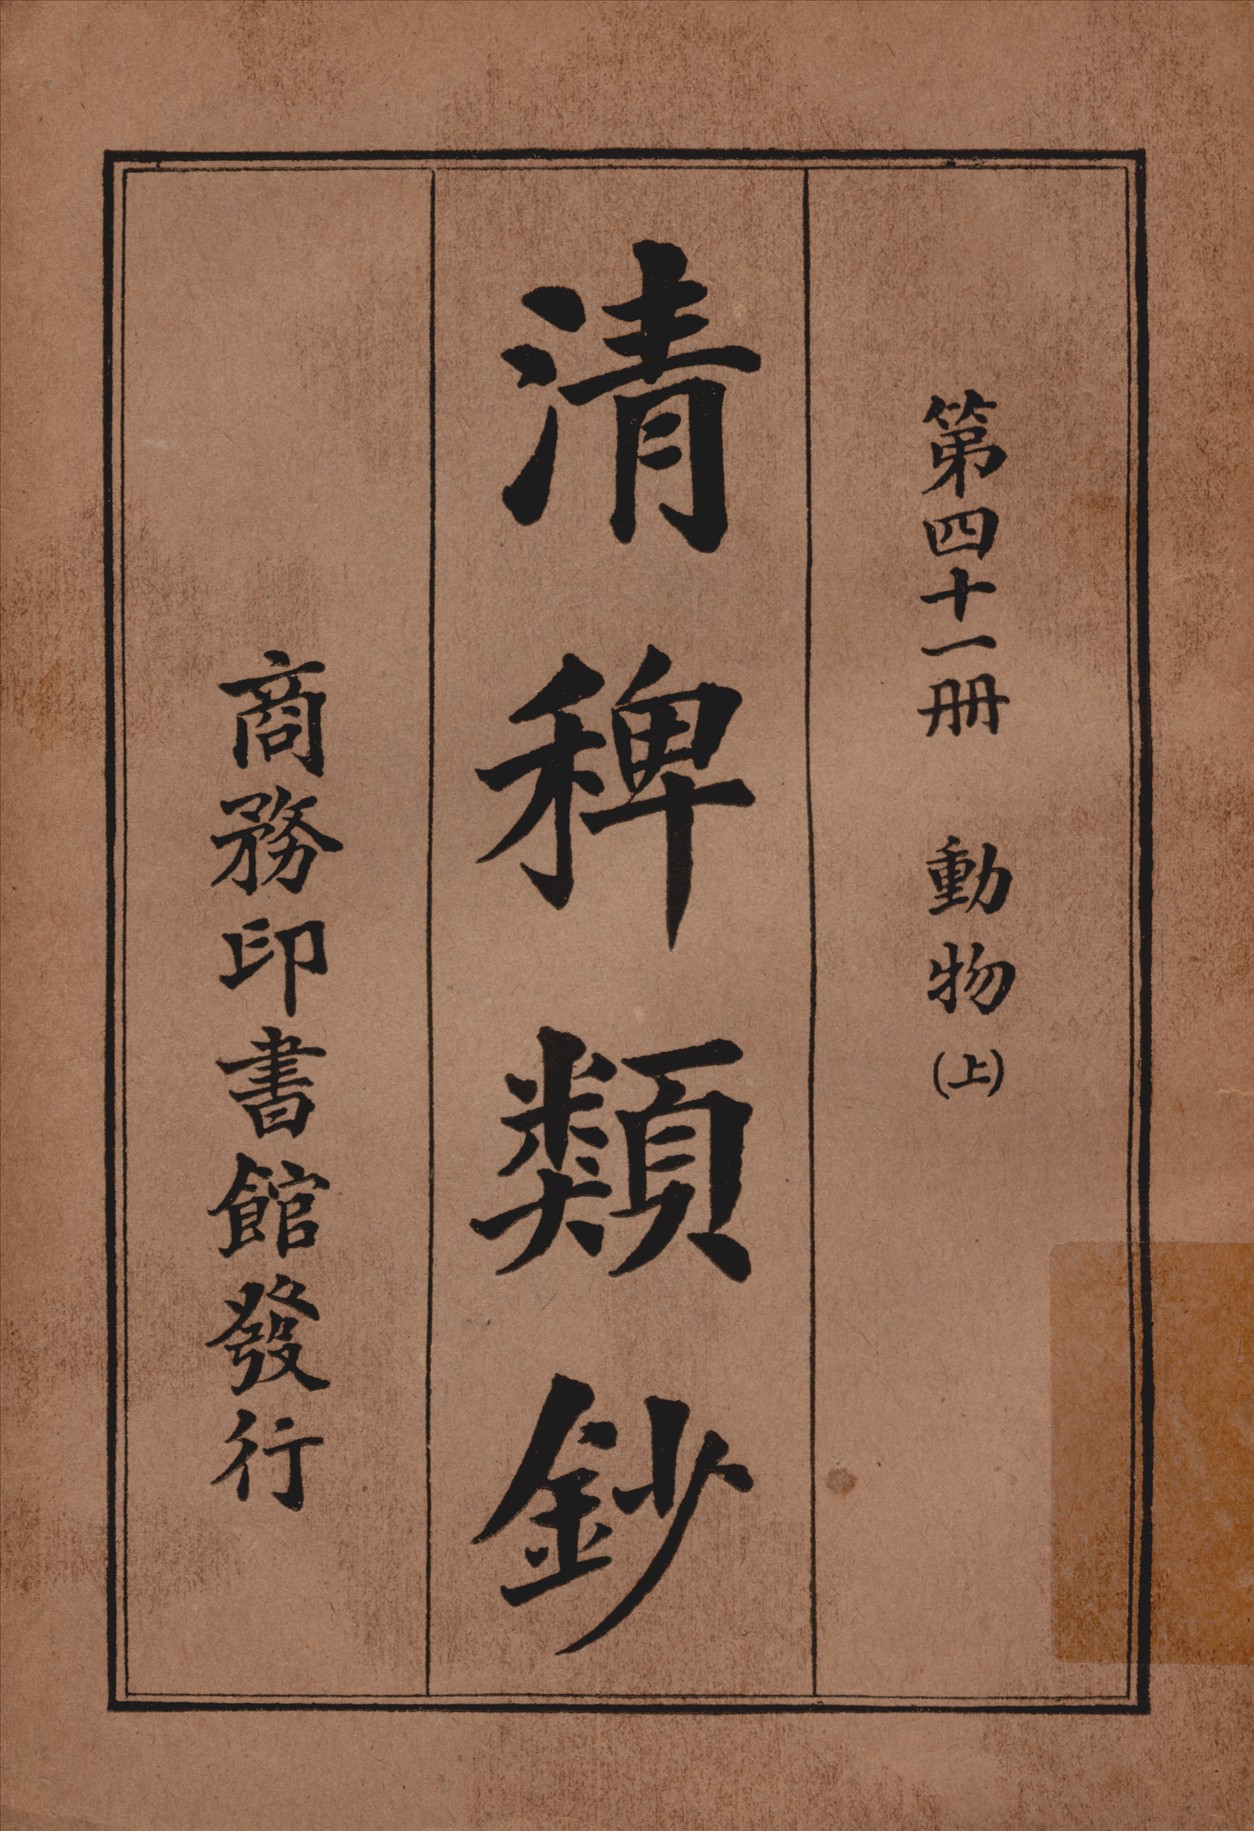 第四十一册　動物(上)
清稗類鈔
商務印書館發行